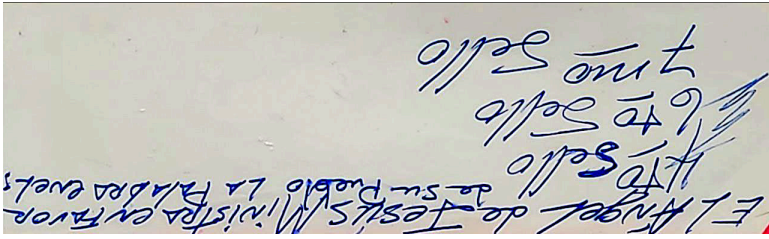 EL Ángel de Jesús Ministra en Favor
de su Pueblo La Palabra en el:
4to Sello
6to Sello
7mo Sello